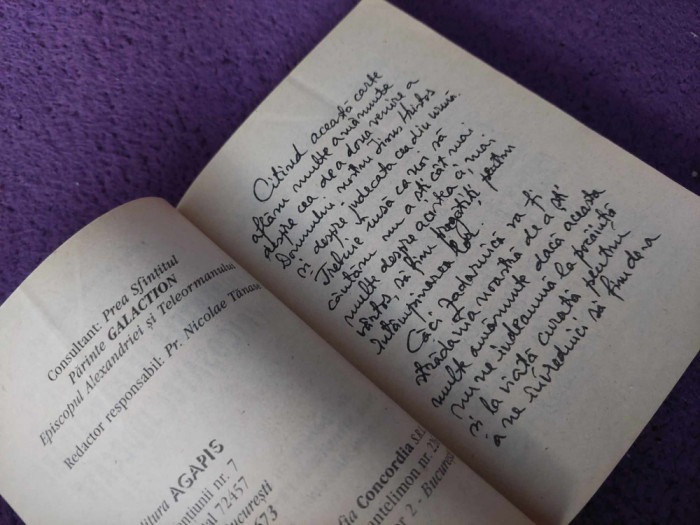 Consultant: Prea Sfințitul
Părinte GALACTION
Episcopul Alexandriei și Teleormanului
Redactor responsabil: Pr. Nicolae Tănase
itura AGAPIS
nțiunii nr. 7
al 72457
București
673
fia Concordia S.R.
antelimon nr. 23
or 2 - Bucure
Citind această carte
aflăm multe amănunte
despre cea de a doua venire a
Domnului nostru Iisus Hristos
și despre judecata cea din urmă.
Trebuie însă ca noi să
căutăm nu a ști cât mai
multe despre acestea ci, mai
vârtos, să fim pregătiți pentru
întâmpinarea lor.
Căci zadarnică va fi
strădania noastră de a ști
multe amănunte dacă aceasta
nu ne îndeamnă la priință
și la viață curată pentru
a ne învrednici să fim de-a